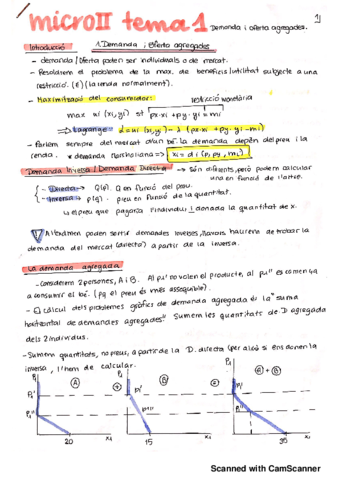 microII tema 1 Demanda i oferta agregades. 1)
1. Demanda i oferta agregades
Introducció
- demanda / Oferta poden ser individuals o de mercat.
- Resoldrem el problema de la max. de beneficis/utilitat subjecte a una
restricció. (€) (la renda normalment).
- Maximització del consumidor: restricció monetària
max ui (xi, yi) st px·xi + py·yi = mi
Lagrange L = ui (xi, yi) - λ (px·xi + py·yi - mi)
- Parlem sempre del mercat d'un bé. la demana depèn del preu i la
renda. * demanda marshaliana => xi = di (p, py, mi)
Demanda Inversa / Demanda Directa -> Són diferents, però podem calcular
una en funció de l'altre.
- Directa -> Q(p). Q en funció del preu.
- Inversa -> p(q). preu en funció de la quantitat.
↳ el preu que pagaria l'individu i donada la quantitat de x.
Al bdmen poden sortir demandes inverses, llavors, haurem de trobar la
demanda del mercat (directa) a partir de la inversa.
La demanda agregada
- Considerem 2 persones, A i B. Al pu' no volen el producte, al pu'' es comença
a consumir el bé. (pq el preu és més assequible).
- El càlcul dels problemes gràfics de demanda agregada és la "suma
horitzontal de demandes agregades". Sumem les quantitats de D agregada
dels 2 individus.
- Sumem quantitats, no preus, a partir de la D. directa (per això si ens donen la
inversa, l'hem de calcular.
P1 P1 P1
A + B = A + B
P1' P1' P1'
P1'' P1'' P1''
20 x1 15 x1 35 x1
Scanned with CamScanner